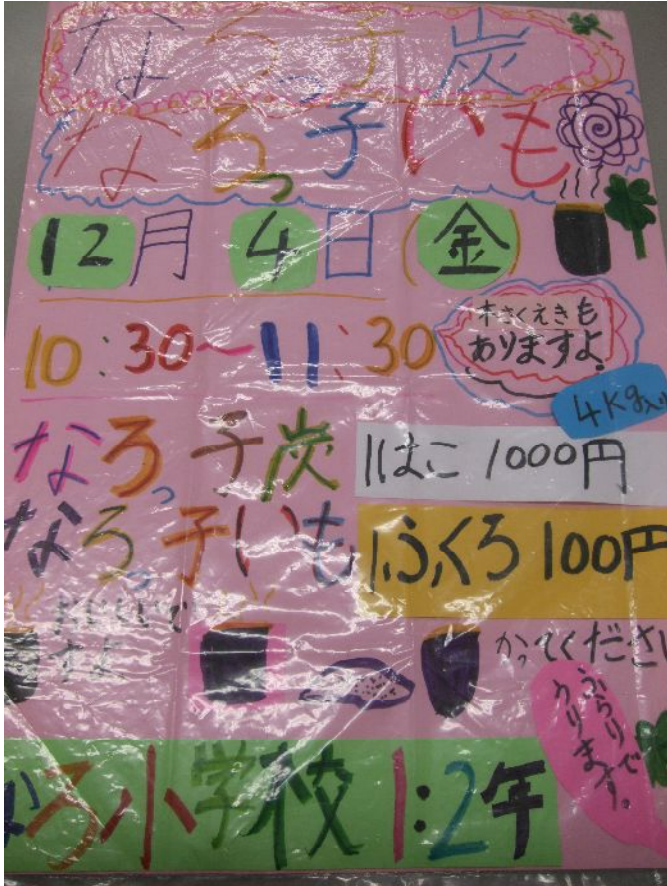 なろっ子炭
なろっ子いも
12月4日(金)
10:30~11:30
木さくえきも
ありますよ。
4Kg入り
なろっ子炭 1はこ 1000円
なろっ子いも 1ふくろ 100円
おいしいで
すよ
かってください
ぷらりで
うります。
なろ小学校 1:2年